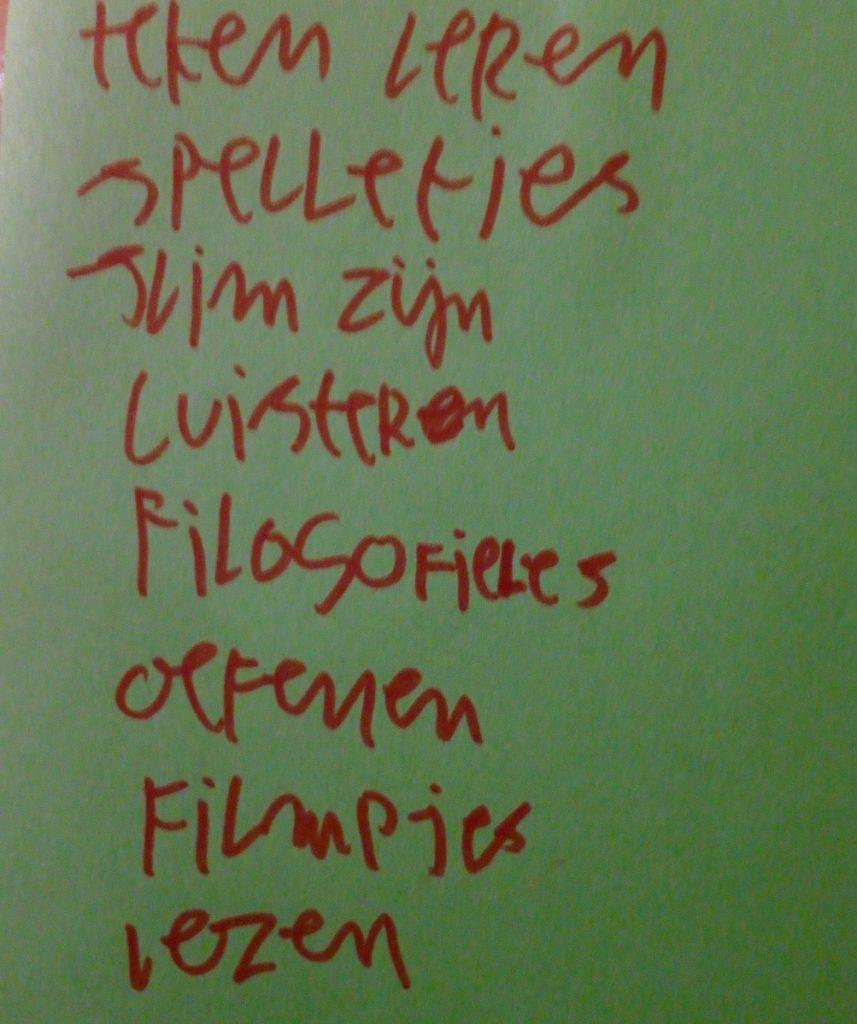 teken leren
spelletjes
slim zijn
Luisteren
Filosofieles
oefenen
Filmpjes
lezen